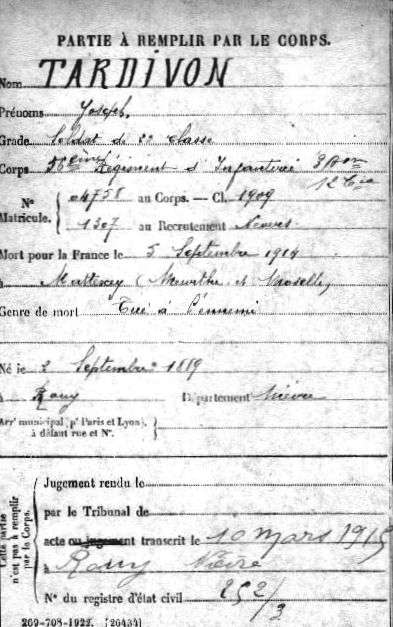 PARTIE À REMPLIR PAR LE CORPS.
Nom TARDIVON
Prénoms Joseph,
Grade Soldat de 2e classe
Corps 56eme Régiment d'Infanterie 3 Bon
12 Cie
N° Matricule. { 04758 au Corps. — Cl. 1909
1307 au Recrutement Nevers
Mort pour la France le 5 Septembre 1914
à Mattexey (Meurthe et Moselle)
Genre de mort Tué à l'ennemi
Né le 2 Septembre 1889
à Rouy Département Nièvre
Arrt municipal (pr Paris et Lyon), à défaut rue et N°. }
Cette partie n'est pas à remplir par le Corps.
Jugement rendu le
par le Tribunal de
acte ou jugement transcrit le 10 mars 1915
à Rouy Nièvre
N° du registre d'état civil 252/3
269-708-1922. [26434]